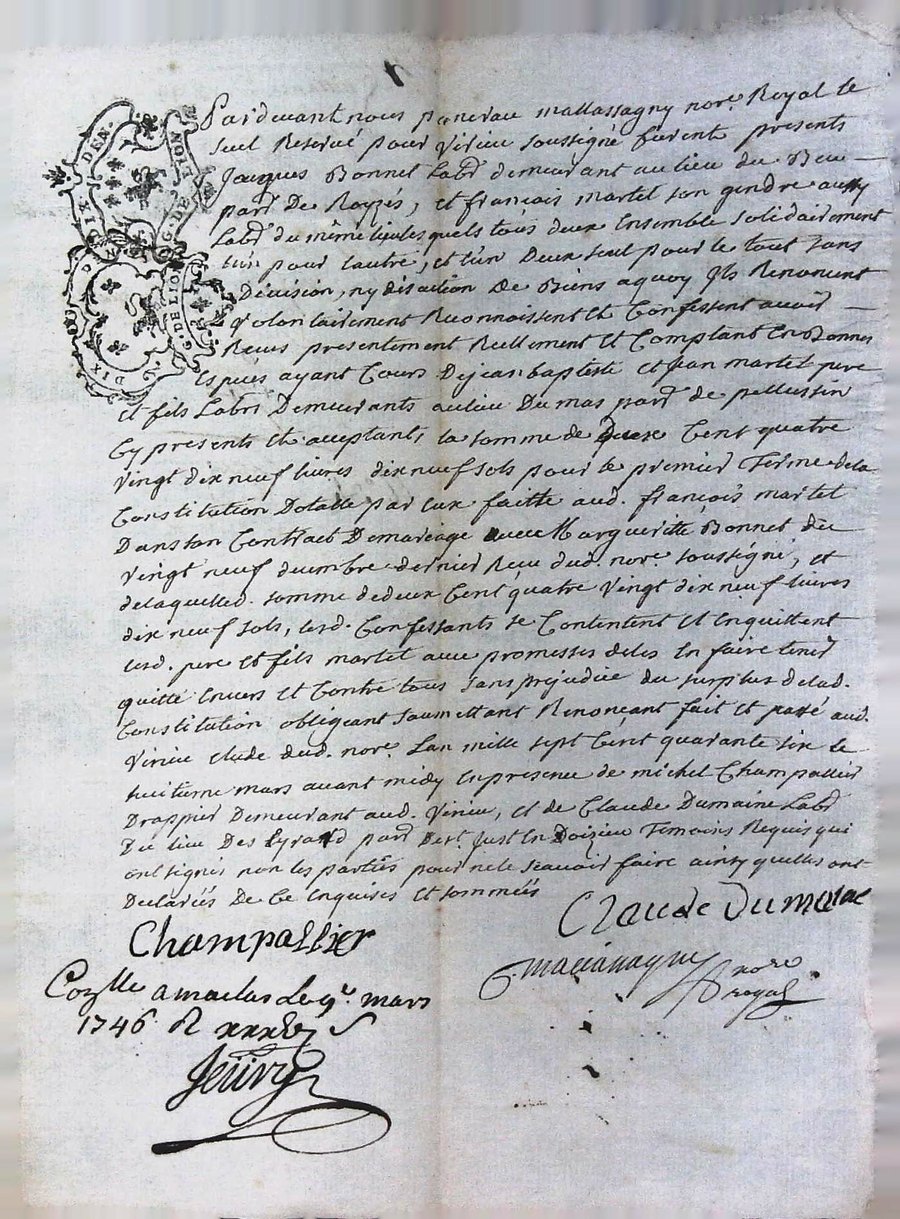 DIX DEN.
G. DE LION
DIX D
G. DE LION
Pardevant nous pancrace mallassagny nore. Royal le
seul Reservé pour Virieu soussigné furent presents
Jacques Bonnet Labr. demeurant au lieu du Beu
parr. De Royzés, et françois martel son gendre aussy
Labr. du même lieu lesquels tous deux Ensemble solidairement
l'un pour l'autre, et l'un Deux seul pour le tout sans
Division, ny discution De Biens aquoy Ils Renoncent
Volontairement Reconnoissent et Confessent avoir
Receus presentement Reellement et Comptant En Bonnes
Especes ayant Cours De jean baptiste et jean martel pere
et fils Labrs Demeurants au lieu Du mas parr. de pellussin
Cy presents et acceptants la somme de Deux Cent quatre
Vingt dix neuf livres dix neuf sols pour le premier Terme de la
Constitution Dotalle par Eux faitte aud. françois martel
Dans son Contract De mariage avec Margueritte Bonnet du
vingt neuf decembre dernier Receu dud. nore. soussigné, et
de laquelled. somme de deux Cent quatre Vingt dix neuf livres
dix neuf sols, lesd. Confessants se Contentent et Enquittent
lesd. pere et fils martel avec promesses de les En faire tenir
quitte Envers et Contre tous sans prejudice du surplus delad.
Constitution obligeant soumettant Renonçant fait et passé aud.
Virieu Etude dud. nore. Lan mille sept Cent quarante six le
huitieme mars avant midy En presence de michel Champallier
Drappier Demeurant aud. Virieu, et de Claude Dumaine Labr.
Du lieu Des Eyraud parr. de st. Just En Doizieu Temoins Requis qui
ont signés non les parties pour ne le sçavoir faire ainsy quelles ont
Declarées De Ce Enquises et sommées
Claude Dumaine
Champallier
nore
royal
Conlle a maclas Le 9e. mars
1746 R